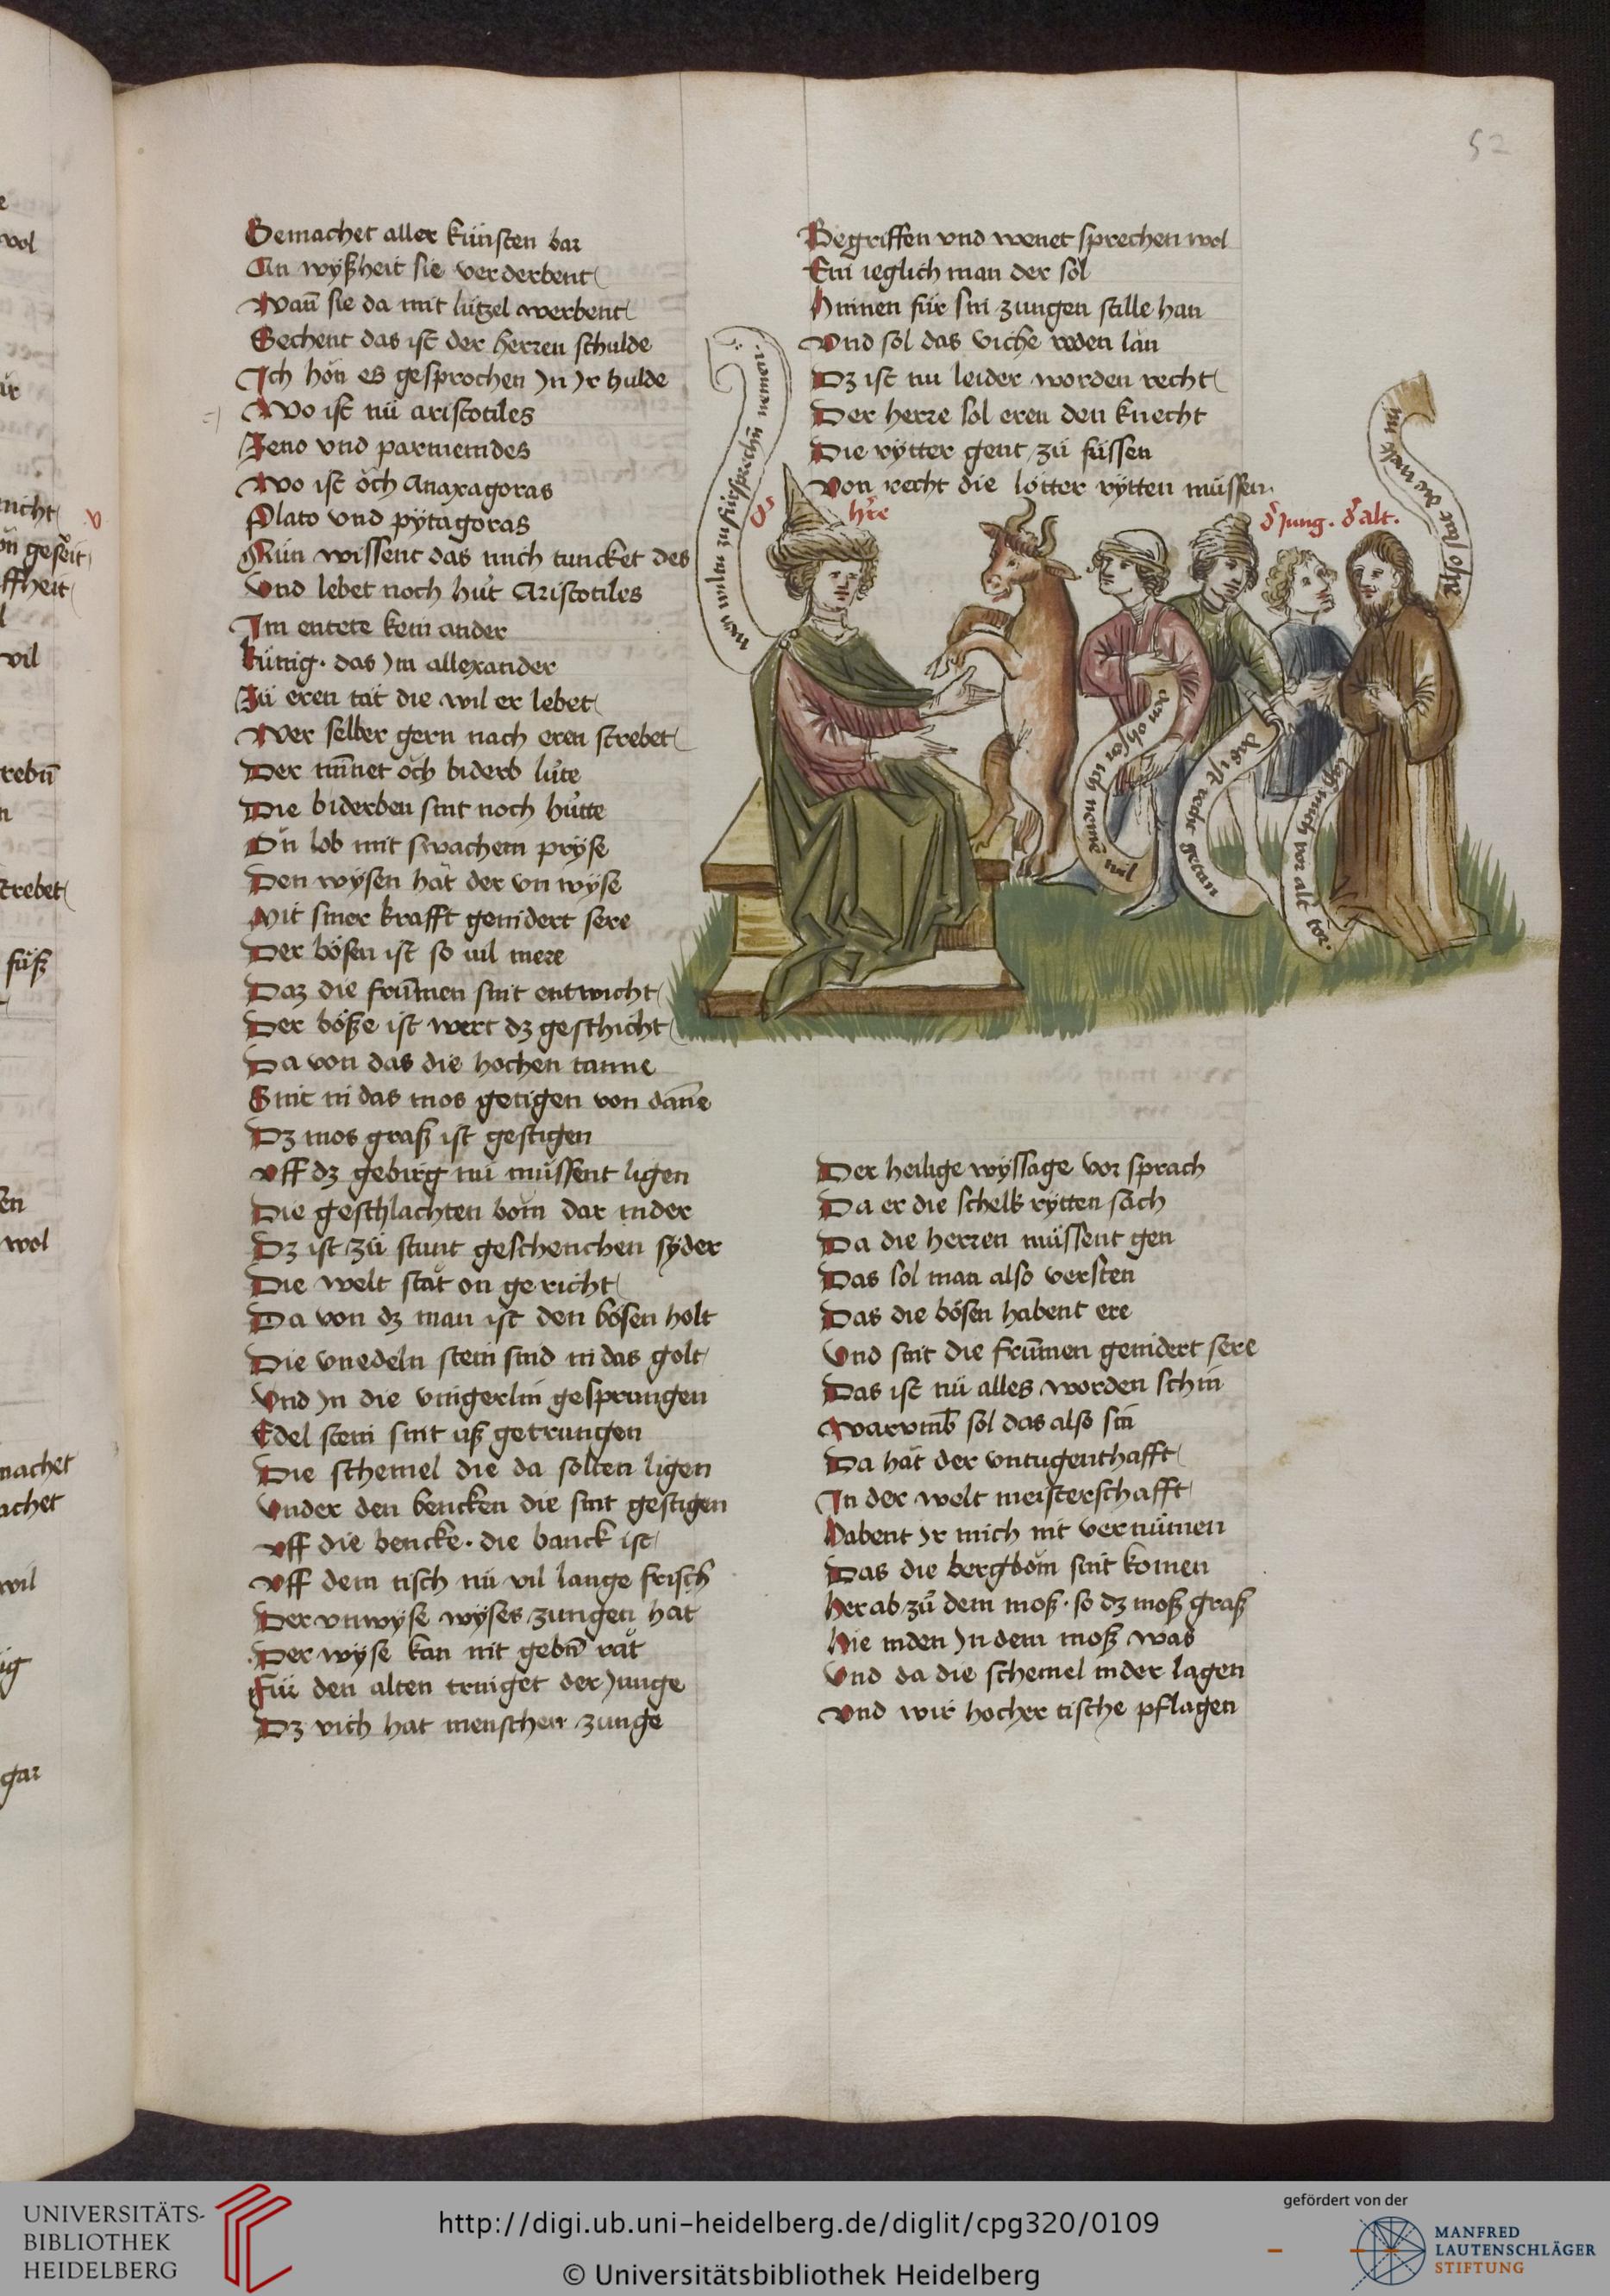 52
Gemachet aller künsten bar
An wyßheit sie verderbent
Wan̄ sie da mit lützel werbent
Sechent das ist der herren schulde
Ich hön es gesprochen jn jr hulde
Wo ist nü aristotiles
Zeno vnd parmenides
Wo ist öch Anaxagoras
Plato vnd pytagoras
Nün wissent das mich tuncket des
Vnd lebet noch hüt Aristotiles
Im entete kein ander
künig. das jm allexander
Zü eren tät die wil er lebet
Wer selber gern nach eren strebet
Der mīnet öch biderb lüte
Die biderben sint noch hütte
On lob mit swachem pryse
Den wysen hät der vn wyse
Mit siner krafft genidert sere
Der bösen ist so uil mere
Daz die frūmen sint entwicht
Der böße ist wert dz geschicht
Da von das die hochen tanne
Sint in das mos getigen von dan̄e
Dz mos graß ist gestigen
vff dz gebirg nu müssent ligen
Die geschlachten böm dar inder
Dz ist zü stunt geschenchen syder
Die welt stät on gericht
Da von dz man ist den bösen holt
Die vnedeln stein sind in das golt
Vnd jn die vingerlin gesprungen
Edel stein sint uß getrungen
Die schemel die da solten ligen
Vnder den bencken die sint gestigen
vff die bencke. die banck ist
vff dem tisch nü vil lange frisch
Der vnwyse wyses zungen hat
Der wyse kan nit gebn̄ rät
Für den alten truiget der junge
Dz vich hat menschen zunge
Begriffen vnd wenet sprechen wol
Ein ieglich man der sol
Hinnen für sin zungen stille han
Vnd sol das viche reden län
Dz ist nu leider worden recht
Der herre sol eren den knecht
Die rytter gent zü füssen
Von recht die lotter rytten müssen.
man wiln zu fürsprechn̄ nomen
hre
d Jung. d alt.
in welt die stat also
den ohsen ich nemē wil
die ist recht getan
laß mich vor alt tor.
Der heilige wyssage vor sprach
Da er die schelk rytten sach
Da die herren müssent gen
Das sol man also versten
Das die bösen habent ere
Vnd sint die frūmen genidert sere
Das ist nü alles worden schin
Warvmb sol das also sin
Da hät der vntugenthafft
In der welt meisterschafft
Habent jr mich nit vernümen
Das die bergböm sint komen
Her ab zü dem moß. so dz moß graß
Hie inden jn dem moß was
Vnd da die schemel inder lagen
Vnd wir hocher tische pflagen
UNIVERSITÄTS-
BIBLIOTHEK
HEIDELBERG
http://digi.ub.uni-heidelberg.de/diglit/cpg320/0109
© Universitätsbibliothek Heidelberg
gefördert von der
MANFRED
LAUTENSCHLÄGER
STIFTUNG